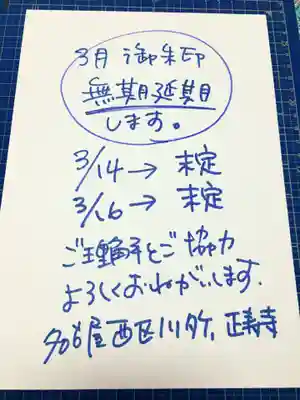 3月 御朱印
無期延期
します。
3/14→ 未定
3/16→ 未定
ご理解とご協力
よろしくおねがいします.
名古屋西区川部, 正寿寺